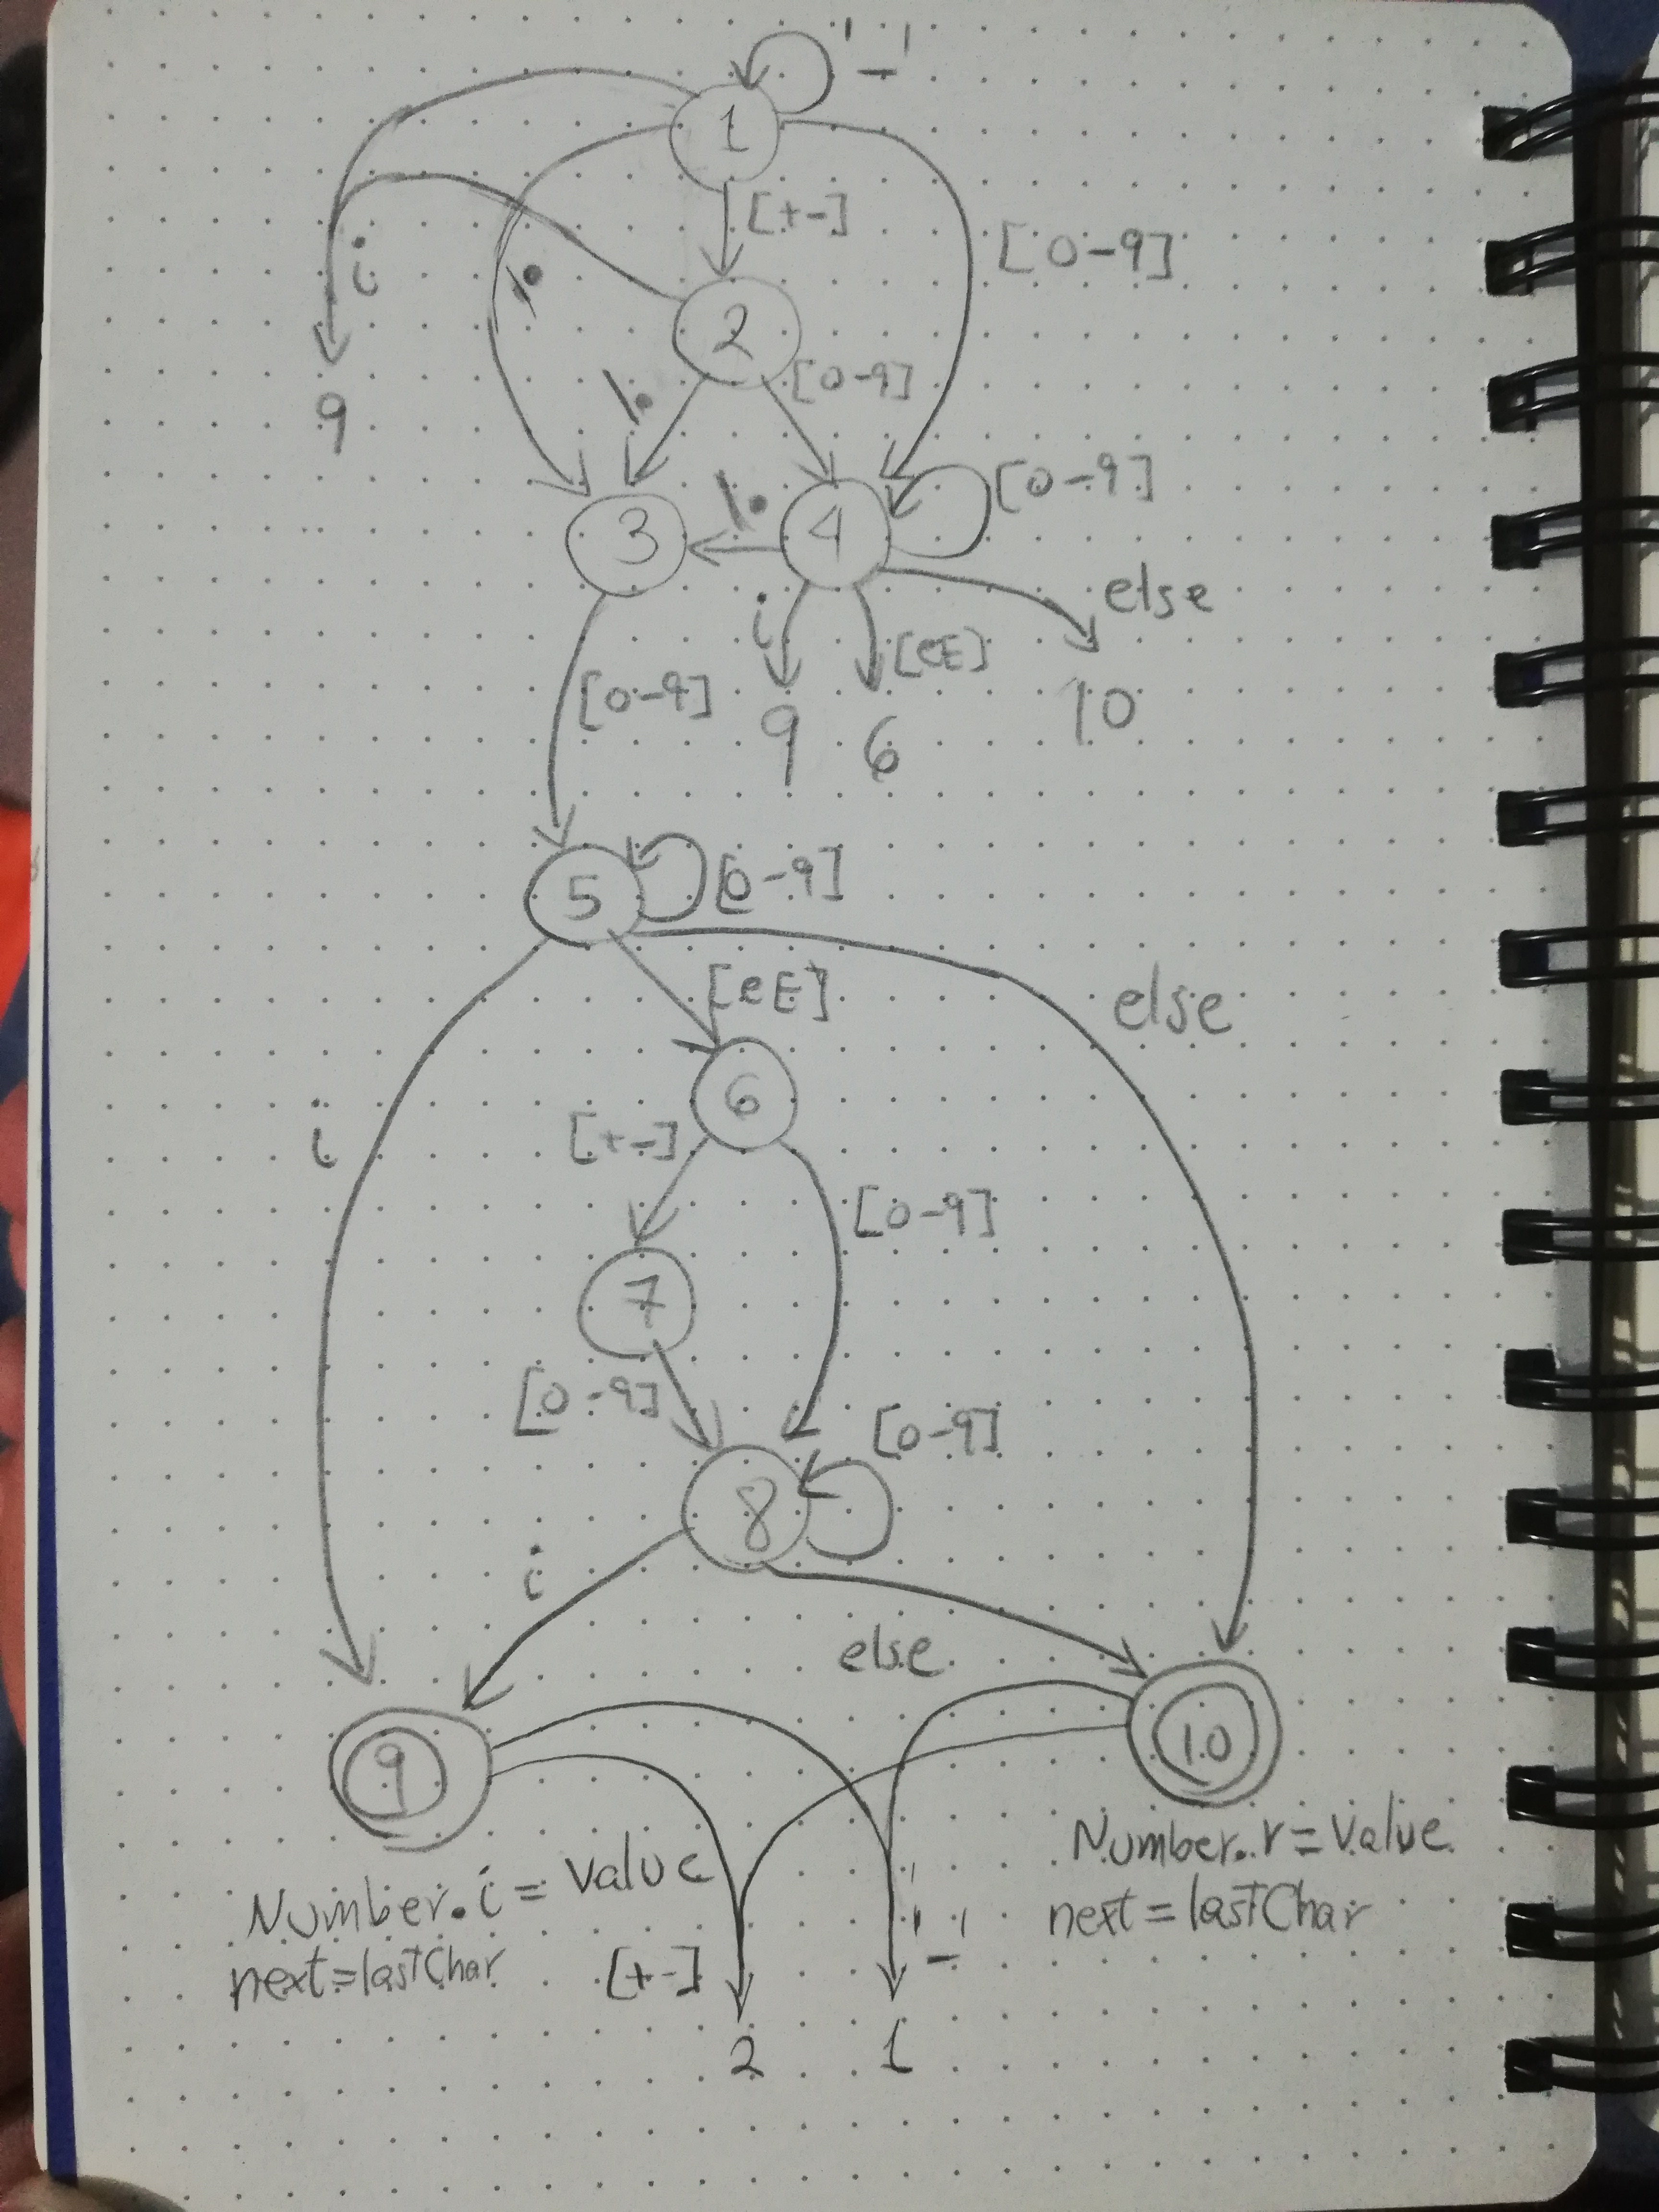 '_'
1
[+-]
[0-9]
i
\.
2
[0-9]
\.
9
\.
[0-9]
3
4
else
i
[eE]
[0-9]
10
9
6
5
[0-9]
[eE]
else
6
i
[+-]
[0-9]
7
[0-9]
[0-9]
8
i
else
9
10
Number.i = value
next=lastChar
Number.r=value
next=lastChar
[+-]
'_'
2
1